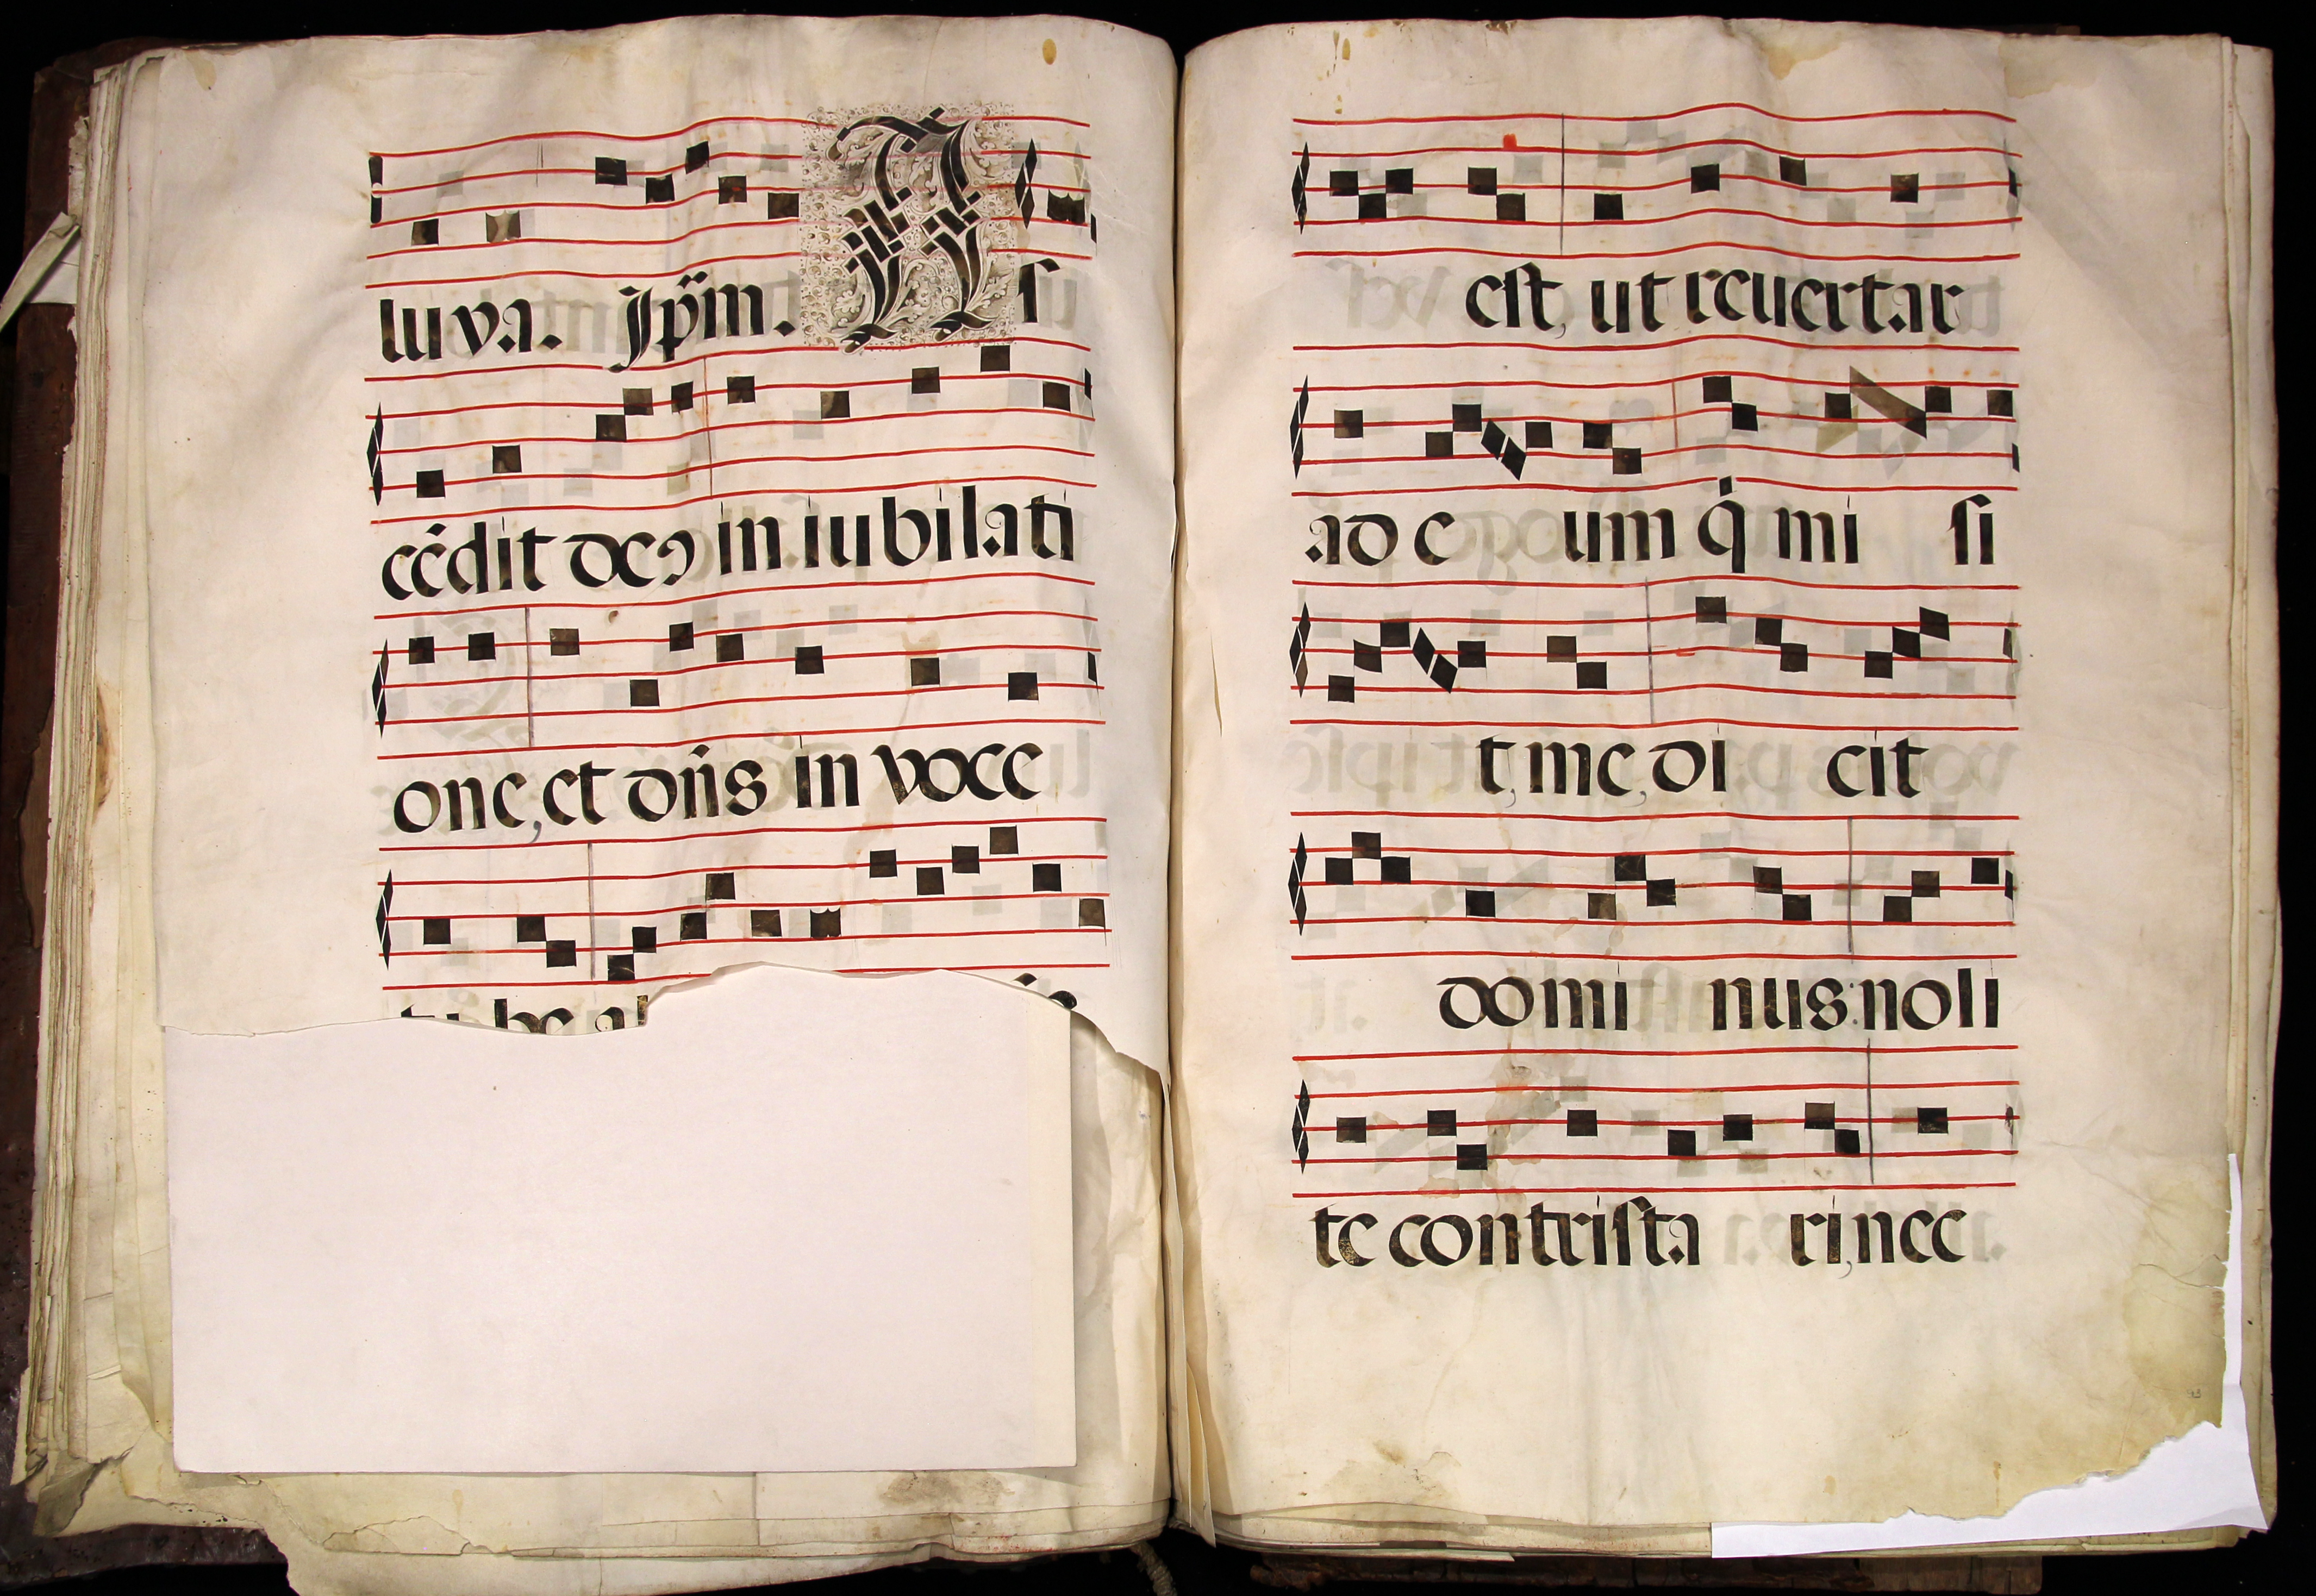 luya. Jp̄m. A s
cēdit deꝰ in iubilati
one, et dn̄s in voce
tu be al
est, ut reuertar
ad e um q̇ mi si
t, me, di cit
domi nus: noli
te contrista ri, nec
93